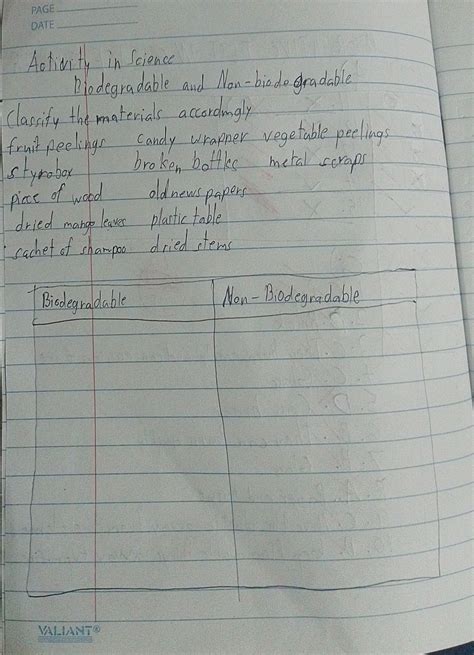 PAGE
DATE
Activity in Science
Biodegradable and Non-biodegradable
Classify the materials accordingly
fruit peelings candy wrapper vegetable peelings
styrobox broken bottles metal scraps
piece of wood old news papers
dried mango leaves plastic table
sachet of shampoo dried stems
Biodegradable Non-Biodegradable
VALIANT®